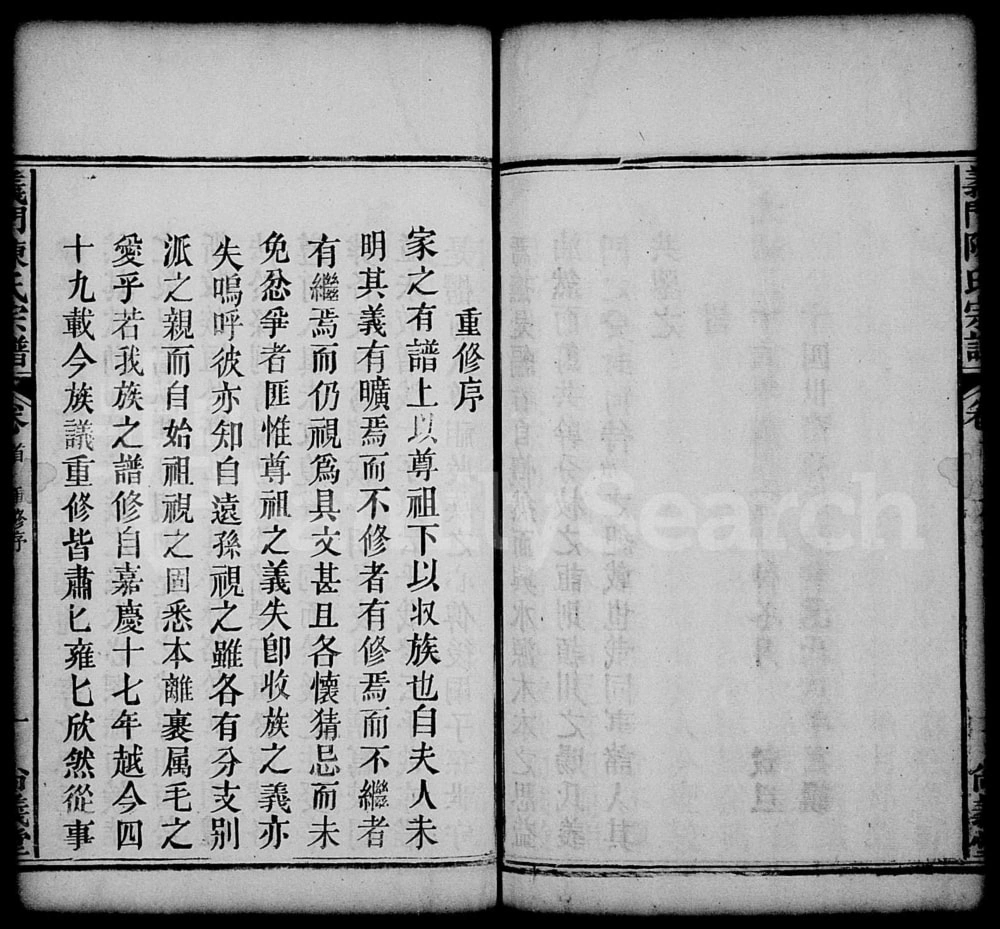 義門陳氏宗譜
尚義堂
重修序
家之有譜上以尊祖下以収族也自夫人未
明其義有曠焉而不修者有修焉而不繼者
有繼焉而仍視爲具文甚且各懷猜忌而未
免忿爭者匪惟尊祖之義失卽收族之義亦
失嗚呼彼亦知自遠孫視之雖各有分支別
派之親而自始祖視之固悉本離裏属毛之
愛乎若我族之譜修自嘉慶十七年越今四
十九載今族議重修皆肅匕雍匕欣然從事
義門陳氏宗譜
卷首
重修序
一
尚義堂
FamilySearch